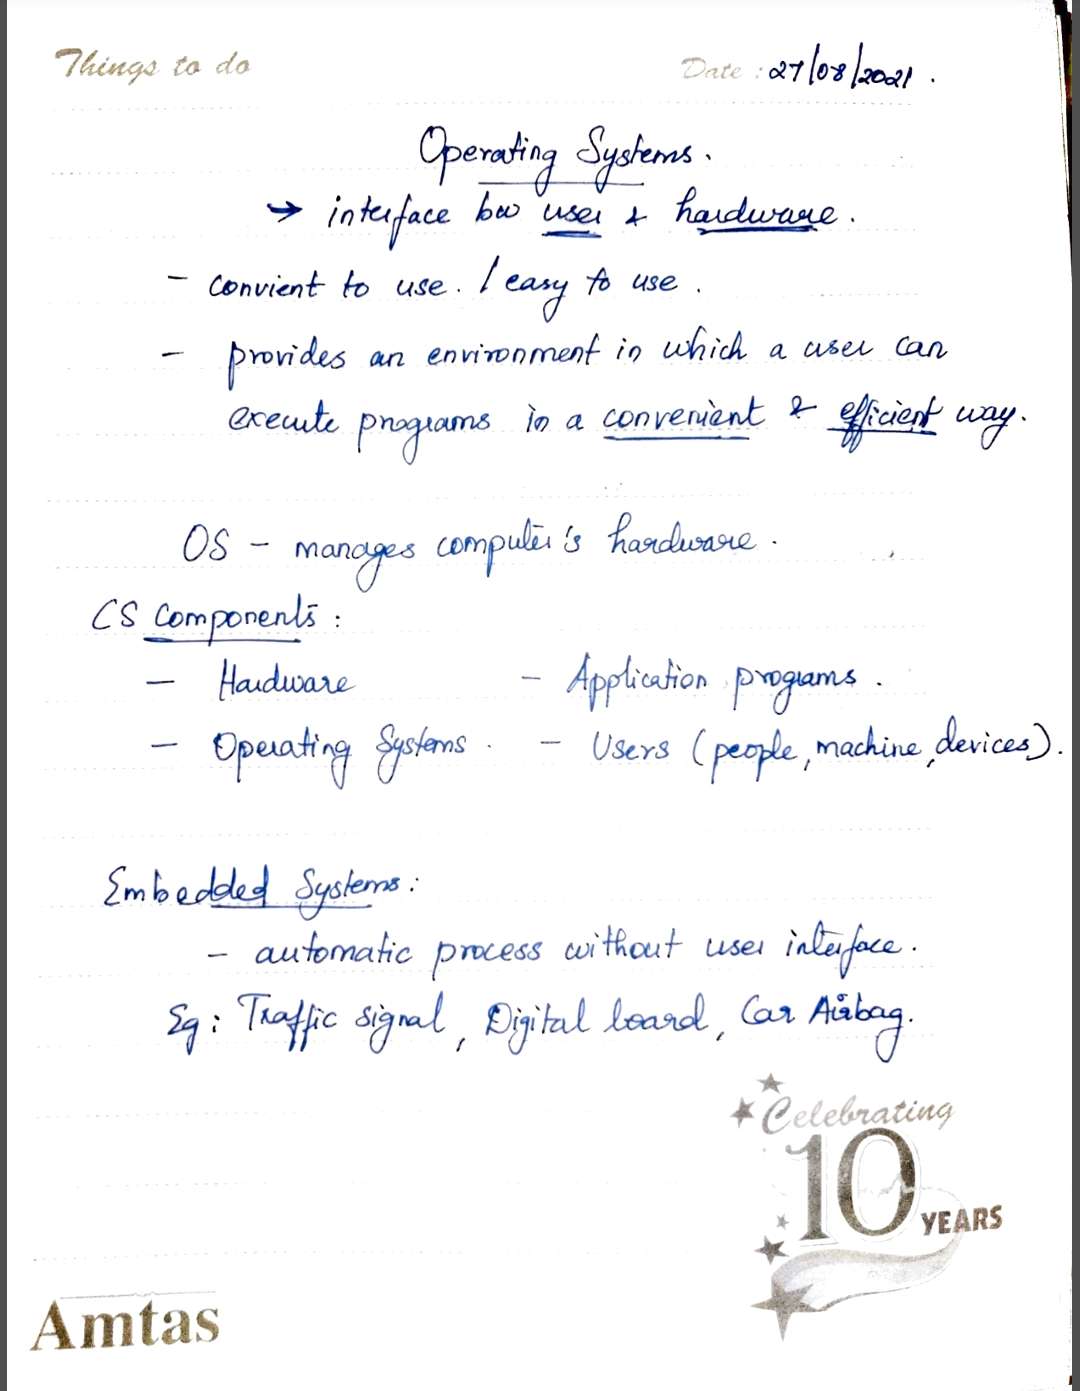 Things to do
Date : 27/08/2021.
Operating Systems.
→ interface bw user & hardware.
- convient to use. / easy to use.
- provides an environment in which a user can
execute programs in a convenient & efficient way.
OS - manages computer's hardware.
CS Components :
- Hardware - Application programs.
- Operating Systems. - Users (people, machine, devices).
Embedded Systems :
- automatic process without user interface.
Eg : Traffic signal, Digital board, Car Airbag.
Celebrating
10
YEARS
Amtas